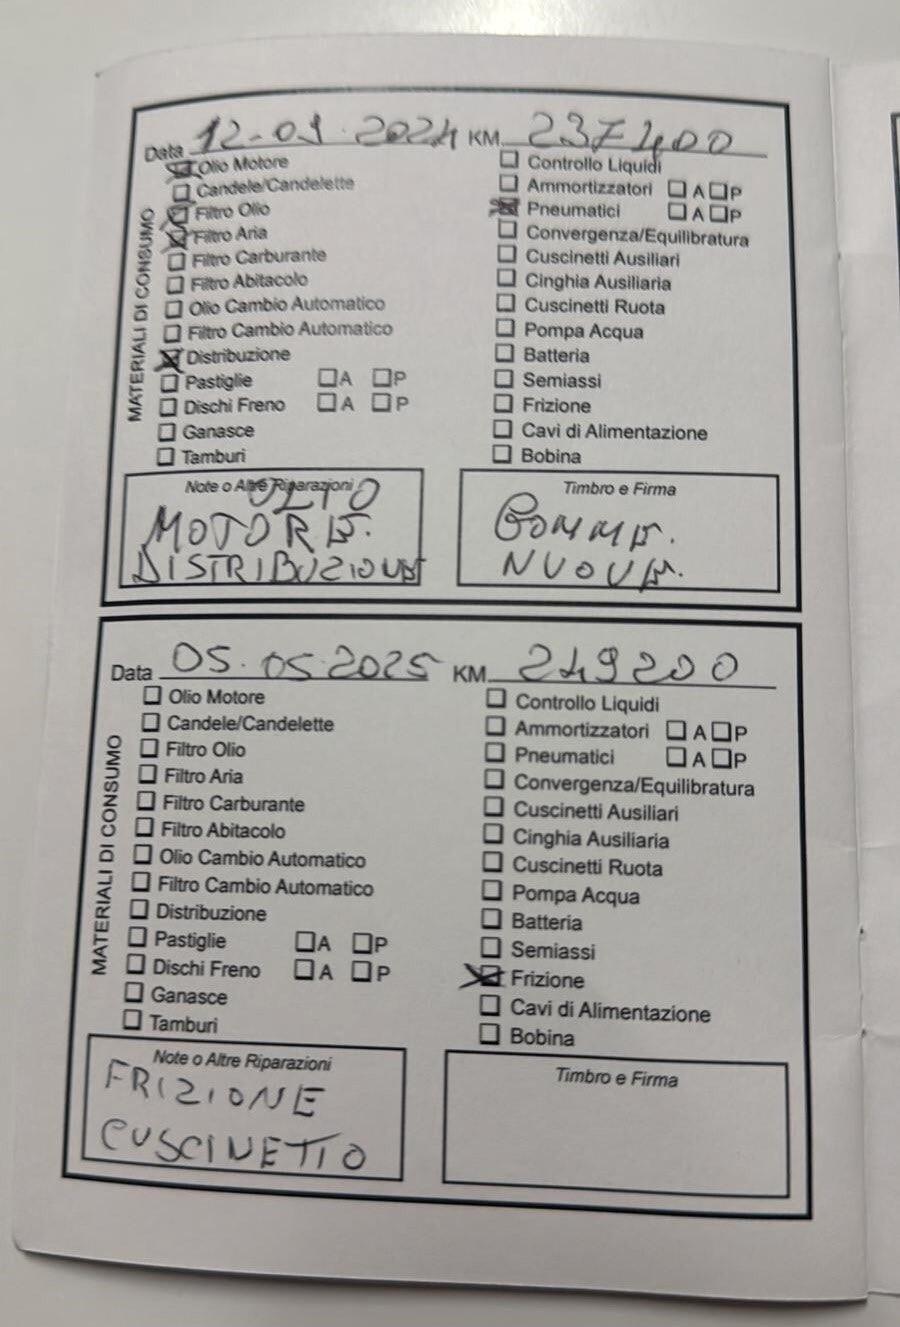 Data 12-01-2024 KM 237400
MATERIALI DI CONSUMO
Olio Motore
Candele/Candelette
Filtro Olio
Filtro Aria
Filtro Carburante
Filtro Abitacolo
Olio Cambio Automatico
Filtro Cambio Automatico
Distribuzione
Pastiglie A P
Dischi Freno A P
Ganasce
Tamburi
Controllo Liquidi
Ammortizzatori A P
Pneumatici A P
Convergenza/Equilibratura
Cuscinetti Ausiliari
Cinghia Ausiliaria
Cuscinetti Ruota
Pompa Acqua
Batteria
Semiassi
Frizione
Cavi di Alimentazione
Bobina
Note o Altre Riparazioni
OLIO
MOTORE.
DISTRIBUZIONE
Timbro e Firma
GOMME.
NUOVE.
Data 05.05.2025 KM 249200
MATERIALI DI CONSUMO
Olio Motore
Candele/Candelette
Filtro Olio
Filtro Aria
Filtro Carburante
Filtro Abitacolo
Olio Cambio Automatico
Filtro Cambio Automatico
Distribuzione
Pastiglie A P
Dischi Freno A P
Ganasce
Tamburi
Controllo Liquidi
Ammortizzatori A P
Pneumatici A P
Convergenza/Equilibratura
Cuscinetti Ausiliari
Cinghia Ausiliaria
Cuscinetti Ruota
Pompa Acqua
Batteria
Semiassi
Frizione
Cavi di Alimentazione
Bobina
Note o Altre Riparazioni
FRIZIONE
CUSCINETTO
Timbro e Firma